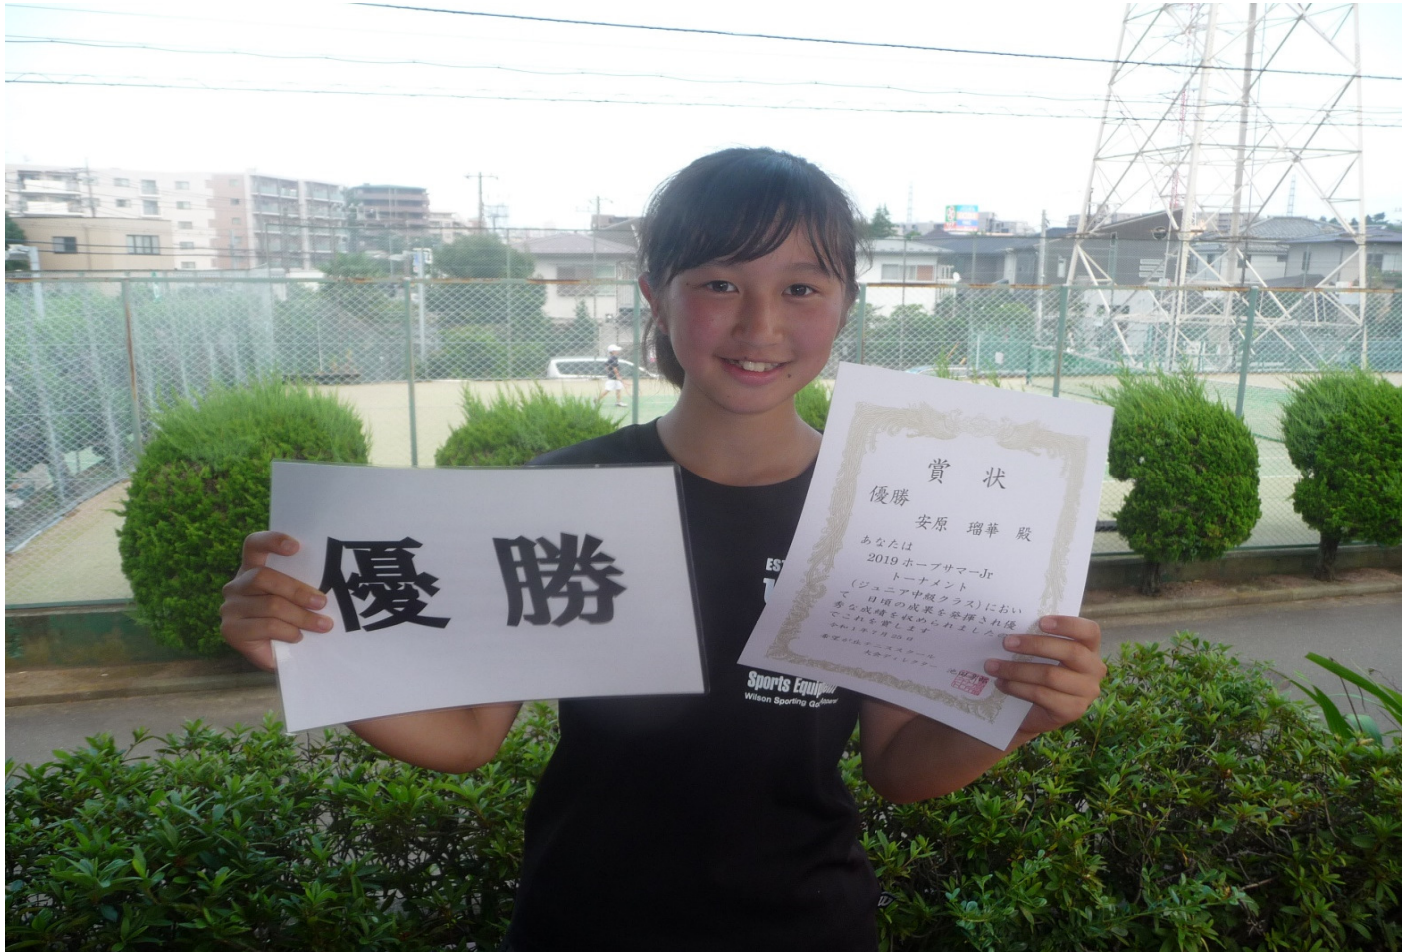 優勝
賞状
優勝
安原 瑠華 殿
あなたは
2019 ホープサマーJr
トーナメント
(ジュニア中級クラス)におい
て 日頃の成果を発揮され優
秀な成績を収められました
でこれを賞します
令和1年7月25日
テニススクール
大会ディレクター
Sports Equip
Wilson Sporting Go